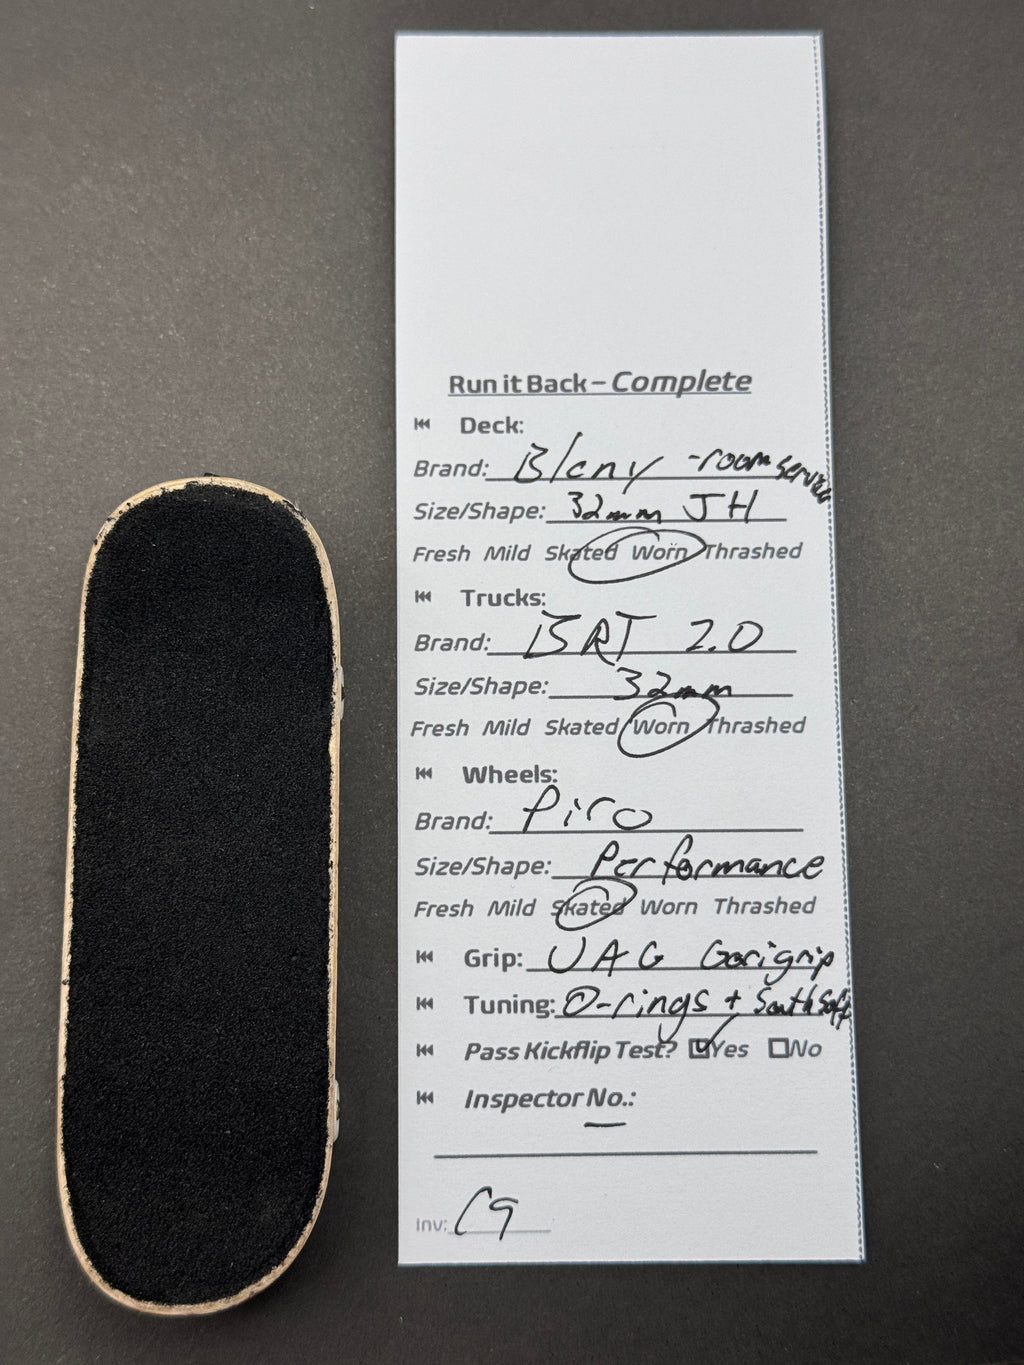 Run it Back – Complete
Deck:
Brand: Blcny -room service
Size/Shape: 32mm JH
Fresh Mild Skated Worn Thrashed
Trucks:
Brand: BRT 2.0
Size/Shape: 32mm
Fresh Mild Skated Worn Thrashed
Wheels:
Brand: Piro
Size/Shape: Performance
Fresh Mild Skated Worn Thrashed
Grip: UAG Gorigrip
Tuning: O-rings + South Soft
Pass Kickflip Test? Yes No
Inspector No.:
Inv: C9